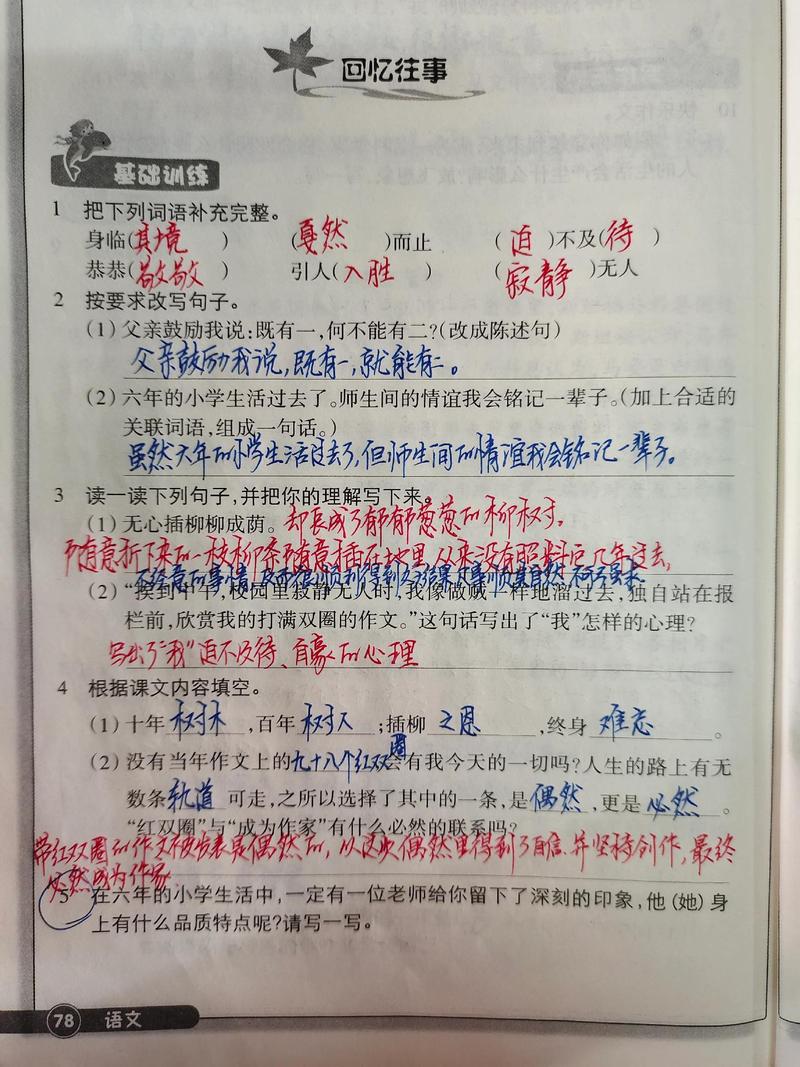 回忆往事
基础训练
1 把下列词语补充完整。
身临(其境) (戛然)而止 (迫)不及(待)
恭恭(敬敬) 引人(入胜) (寂静)无人
2 按要求改写句子。
(1) 父亲鼓励我说:既有一,何不能有二?(改成陈述句)
父亲鼓励我说,既有一,就能有二。
(2) 六年的小学生活过去了。师生间的情谊我会铭记一辈子。(加上合适的
关联词语,组成一句话。)
虽然六年的小学生活过去了,但师生间的情谊我会铭记一辈子。
3 读一读下列句子,并把你的理解写下来。
(1) 无心插柳柳成荫。却长成了郁郁葱葱的柳树。
随意折下来的一枝柳条随意插在地里,从来没有照料它,几年过去,
不经意的事情,反而很顺利得到好结果,凡事顺其自然,不可强求
(2) “挨到中午,校园里寂静无人时,我像做贼一样地溜过去,独自站在报
栏前,欣赏我的打满双圈的作文。”这句话写出了“我”怎样的心理?
写出了“我”迫不及待、自豪的心理
4 根据课文内容填空。
(1) 十年树木,百年树人;插柳之恩,终身难忘。
(2) 没有当年作文上的九十八个红双圈会有我今天的一切吗?人生的路上有无
数条轨道可走,之所以选择了其中的一条,是偶然,更是必然。
“红双圈”与“成为作家”有什么必然的联系吗?
带红双圈的作文被发表是偶然的,从这次偶然里得到了自信并坚持创作,最终
必然成为作家.
5 在六年的小学生活中,一定有一位老师给你留下了深刻的印象,他(她)身
上有什么品质特点呢?请写一写。
78 语文